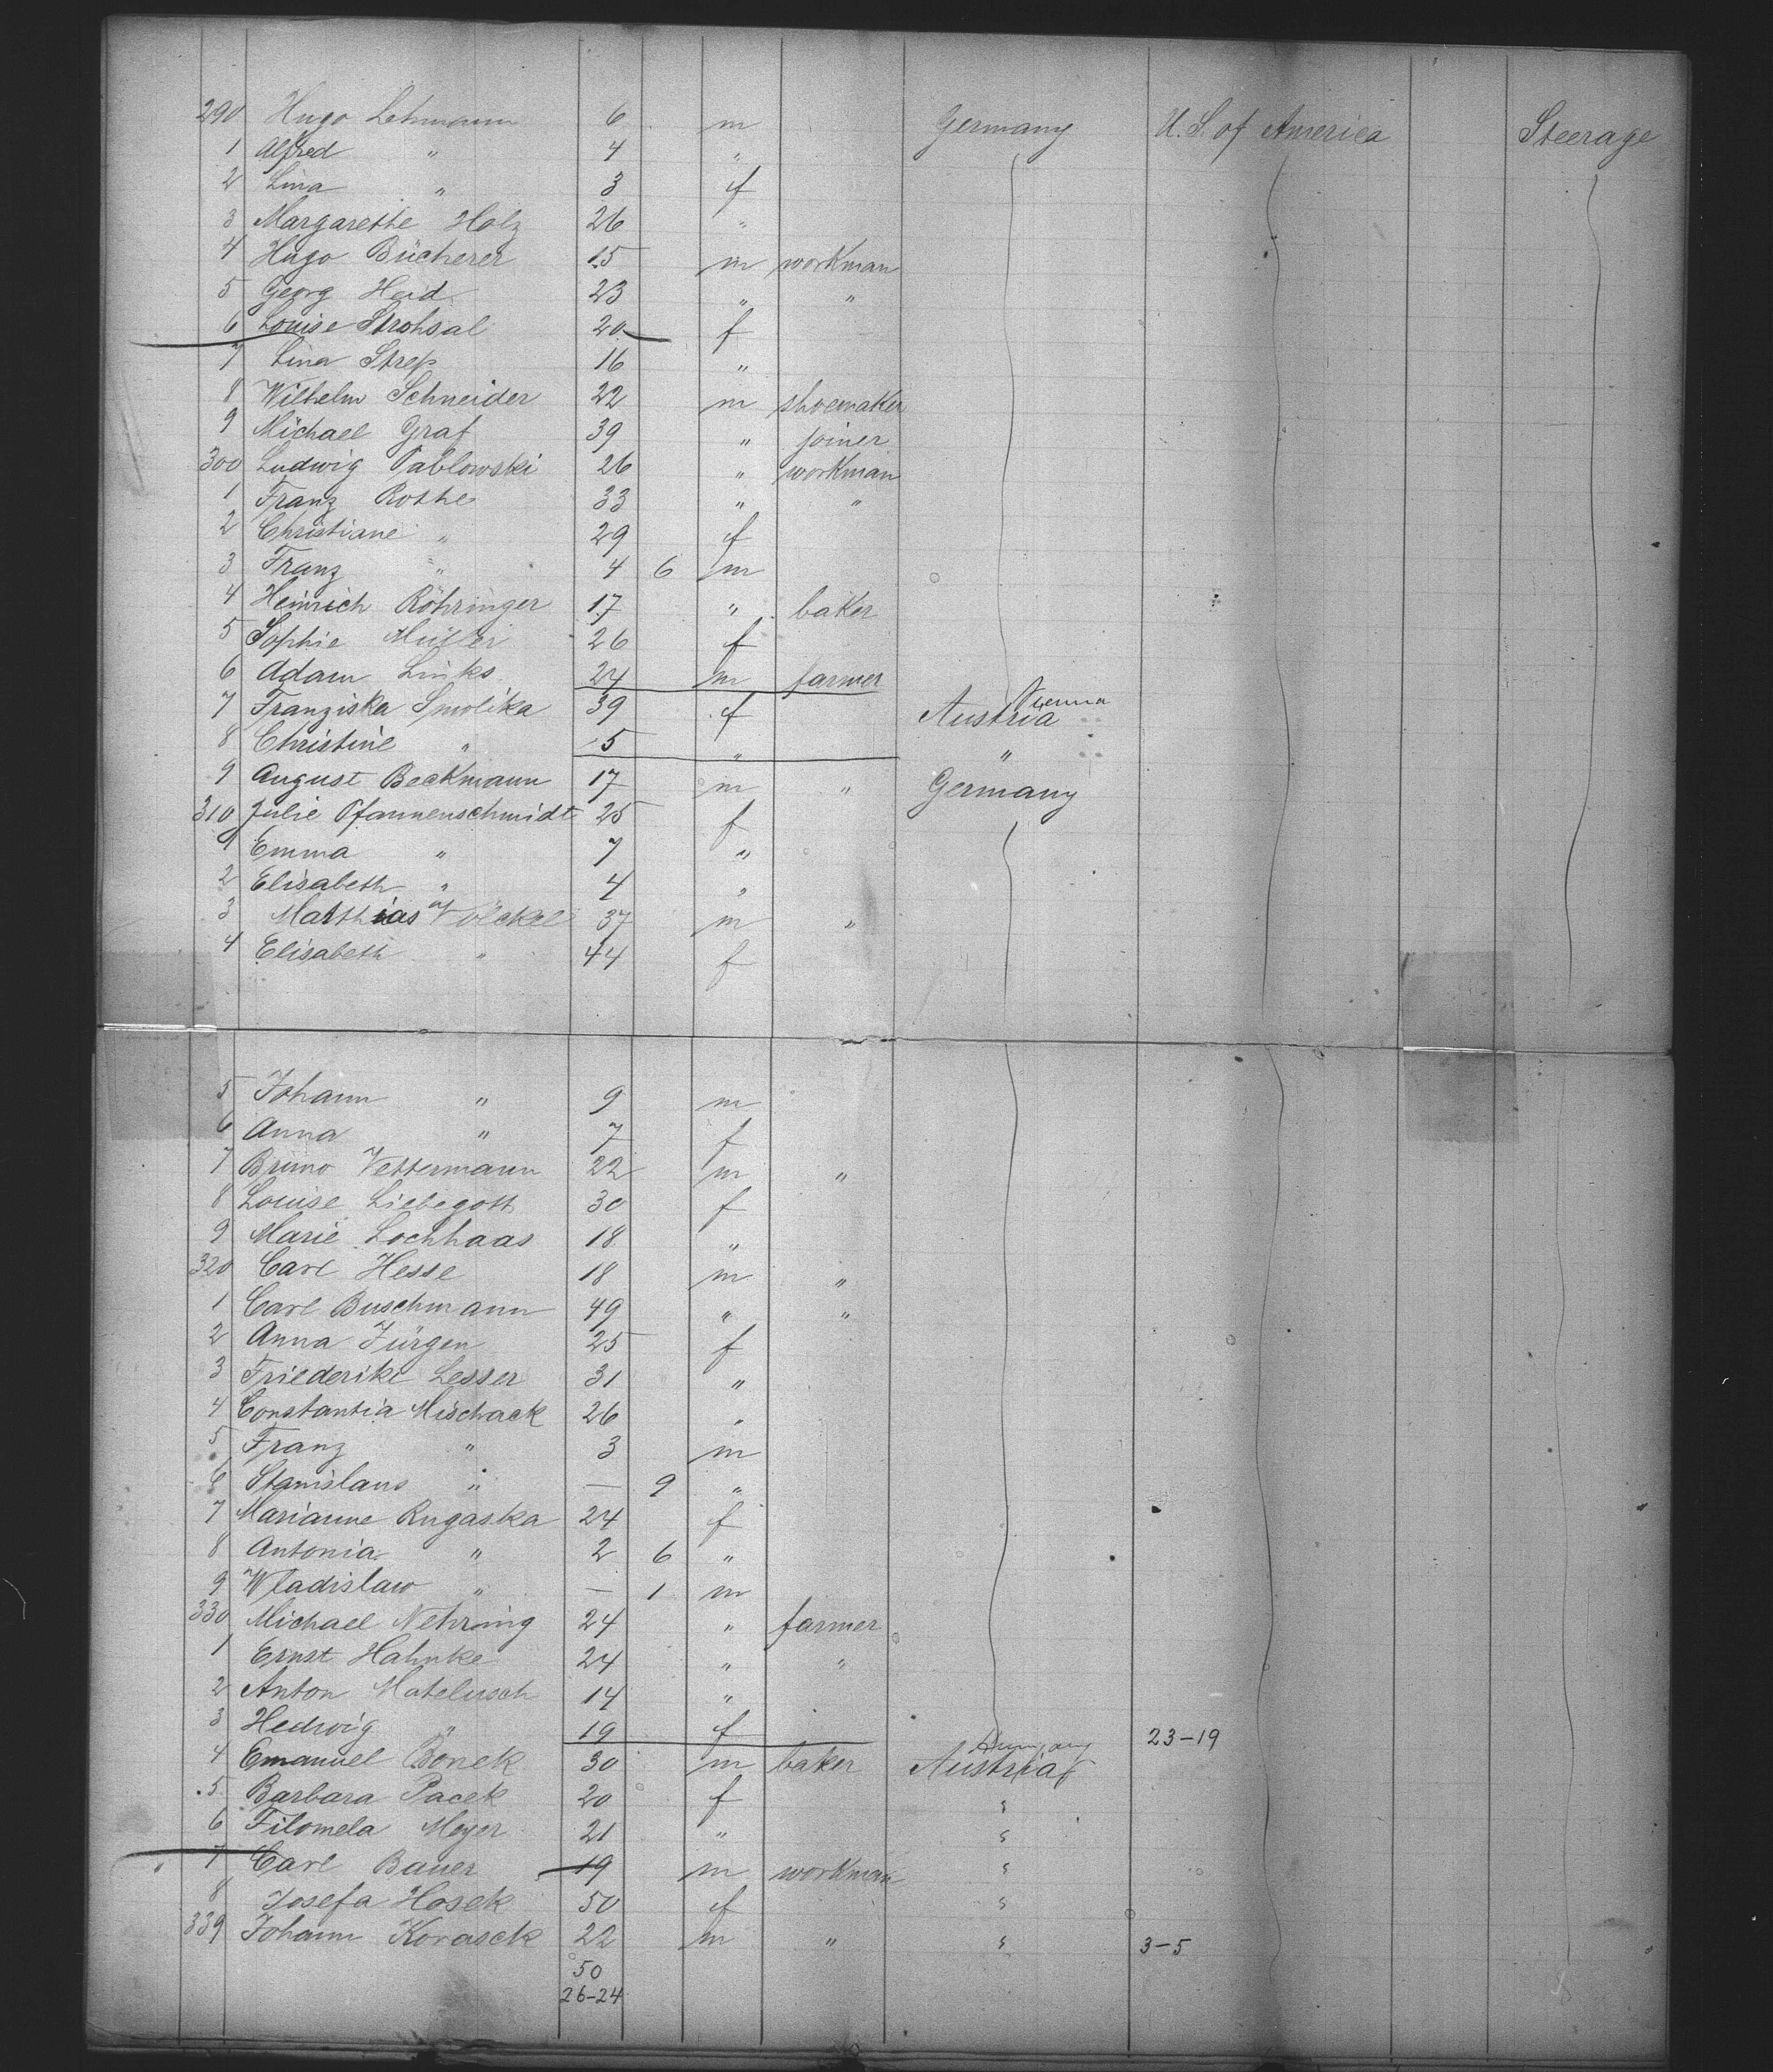 290 Hugo Lehmann 6 m Germany U. S. of America Steerage
1 Alfred " 4 "
2 Lina " 3 f
3 Margarethe Holz 26 "
4 Hugo Bücherer 15 m workman
5 Georg Heid 23 " "
6 Louise Strohsal 20 f
7 Lina Strep 16 "
8 Wilhelm Schneider 22 m shoemaker
9 Michael Graf 39 " joiner
300 Ludwig Pablowski 26 " workman
1 Franz Rothe 33 " "
2 Christiane " 29 f
3 Franz " 4 6 m
4 Heinrich Röhringer 17 " baker
5 Sophie Müller 26 f
6 Adam Links 24 m farmer
7 Franziska Smolika 39 f Austria Vienna
8 Christine " 5 " "
9 August Beckmann 17 m " Germany
310 Julie Pfannenschmidt 25 f
1 Emma " 7 "
2 Elisabeth " 4 "
3 Matthias Völckel 37 m "
4 Elisabeth " 44 f
5 Johann " 9 m
6 Anna " 7 f
7 Bruno Vettermann 22 m "
8 Louise Liebegott 30 f
9 Marie Lochhaas 18 "
320 Carl Hesse 18 m "
1 Carl Buschmann 49 " "
2 Anna Jürgen 25 f
3 Friederike Lesser 31 "
4 Constantia Mischack 26 "
5 Franz " 3 m
6 Stanislaus " — 9 "
7 Marianne Rugaska 24 f
8 Antonia " 2 6 "
9 Wladislaw " — 1 m
330 Michael Nehring 24 " farmer
1 Ernst Hahnke 24 " "
2 Anton Matelusch 14 "
3 Hedwig " 19 f 23-19
4 Emanuel Bonek 30 m baker Austria Hungary
5 Barbara Pacek 20 f "
6 Filomela Meyer 21 " "
7 Carl Bauer 19 m workman "
8 Josefa Hosek 50 f "
339 Johann Korasek 22 m " " 3-5
50
26-24